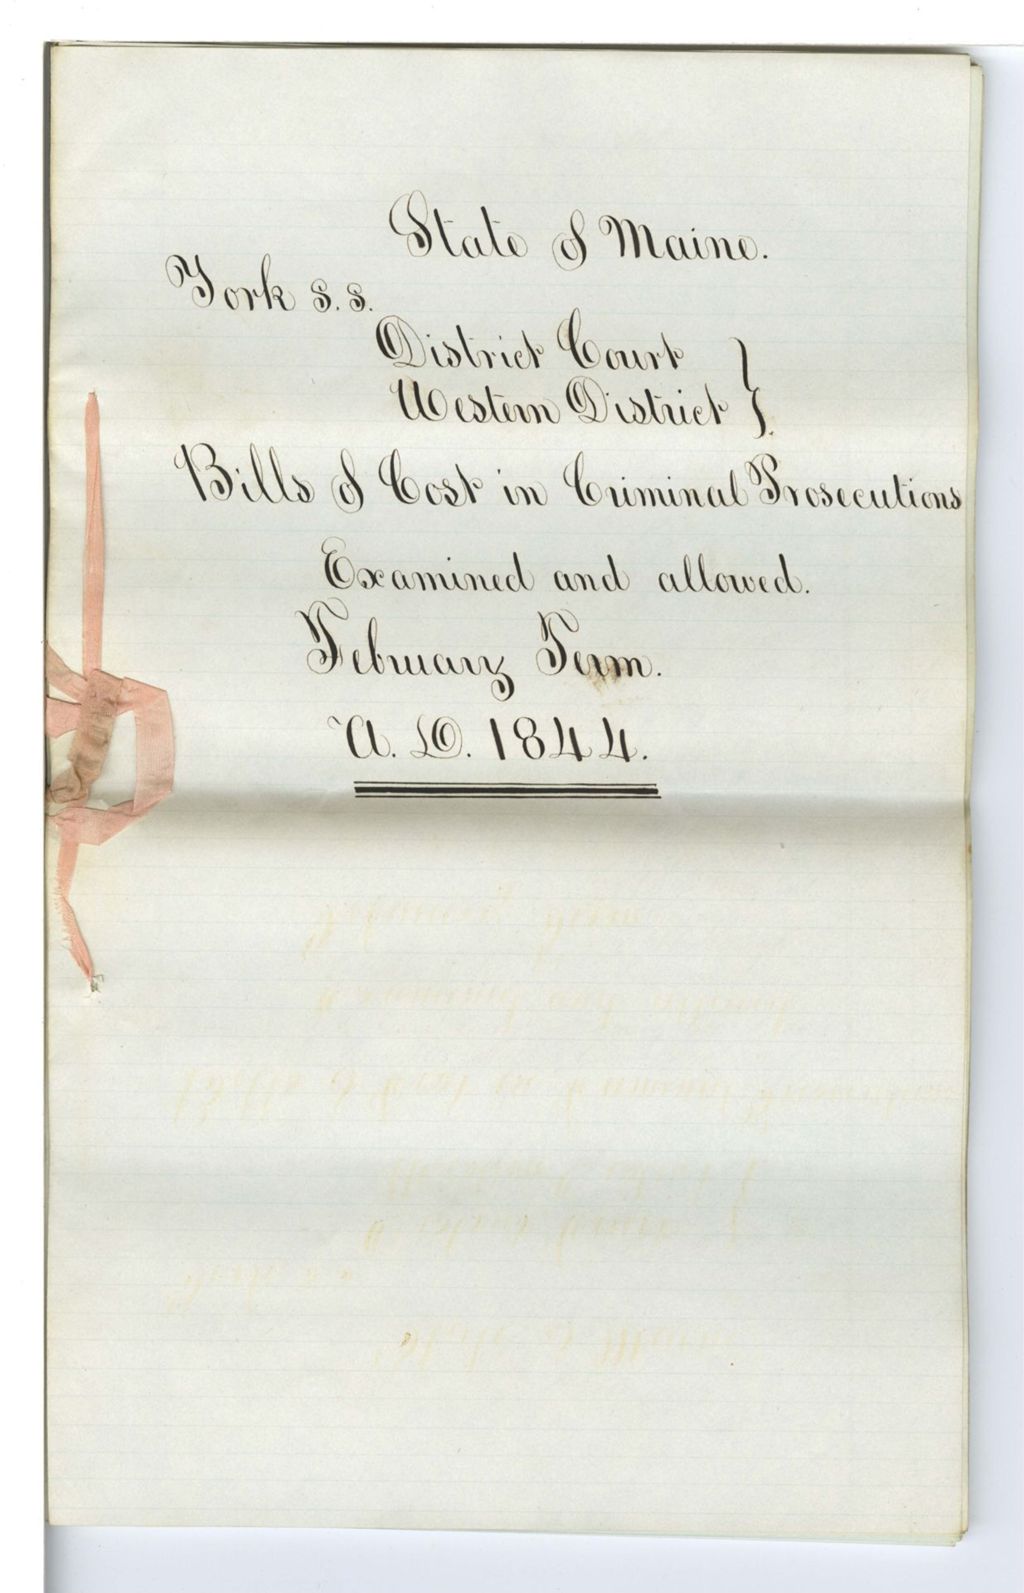 State of Maine.
York s.s.
District Court }
Western District }.
Bills of Cost in Criminal Prosecutions
Examined and allowed.
February Term.
A. D. 1844.